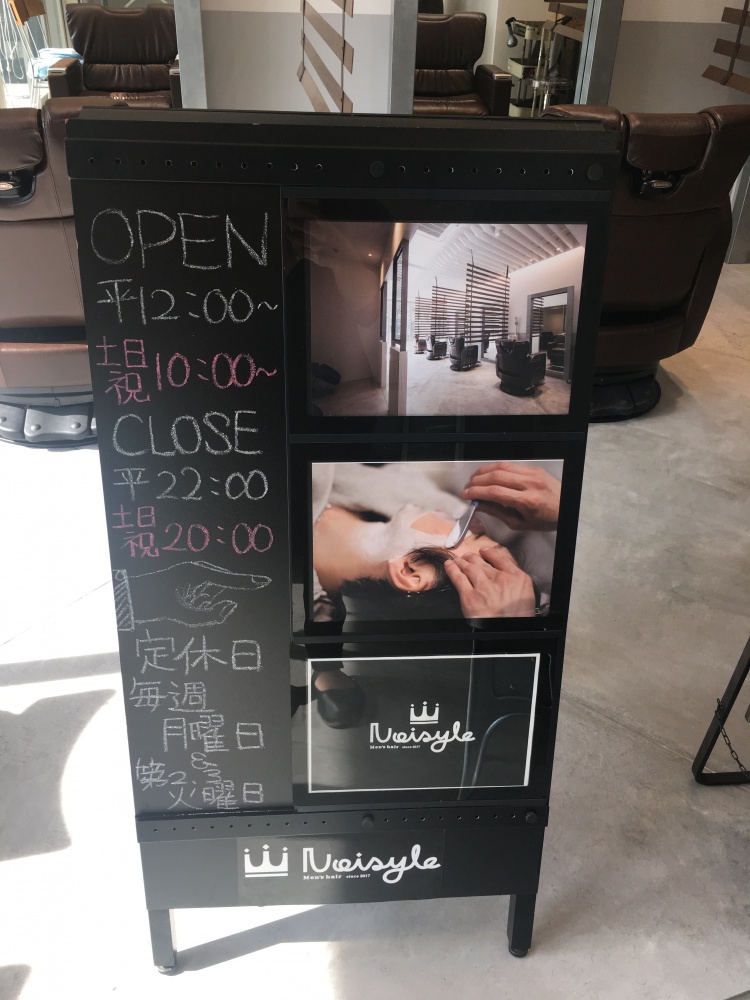 OPEN
平12:00~
土日祝10:00~
CLOSE
平22:00
土日祝20:00
定休日
毎週
月曜日
&
第2、3
火曜日
Noisyle
Men's hair since 2017
Noisyle
Men's hair since 2017